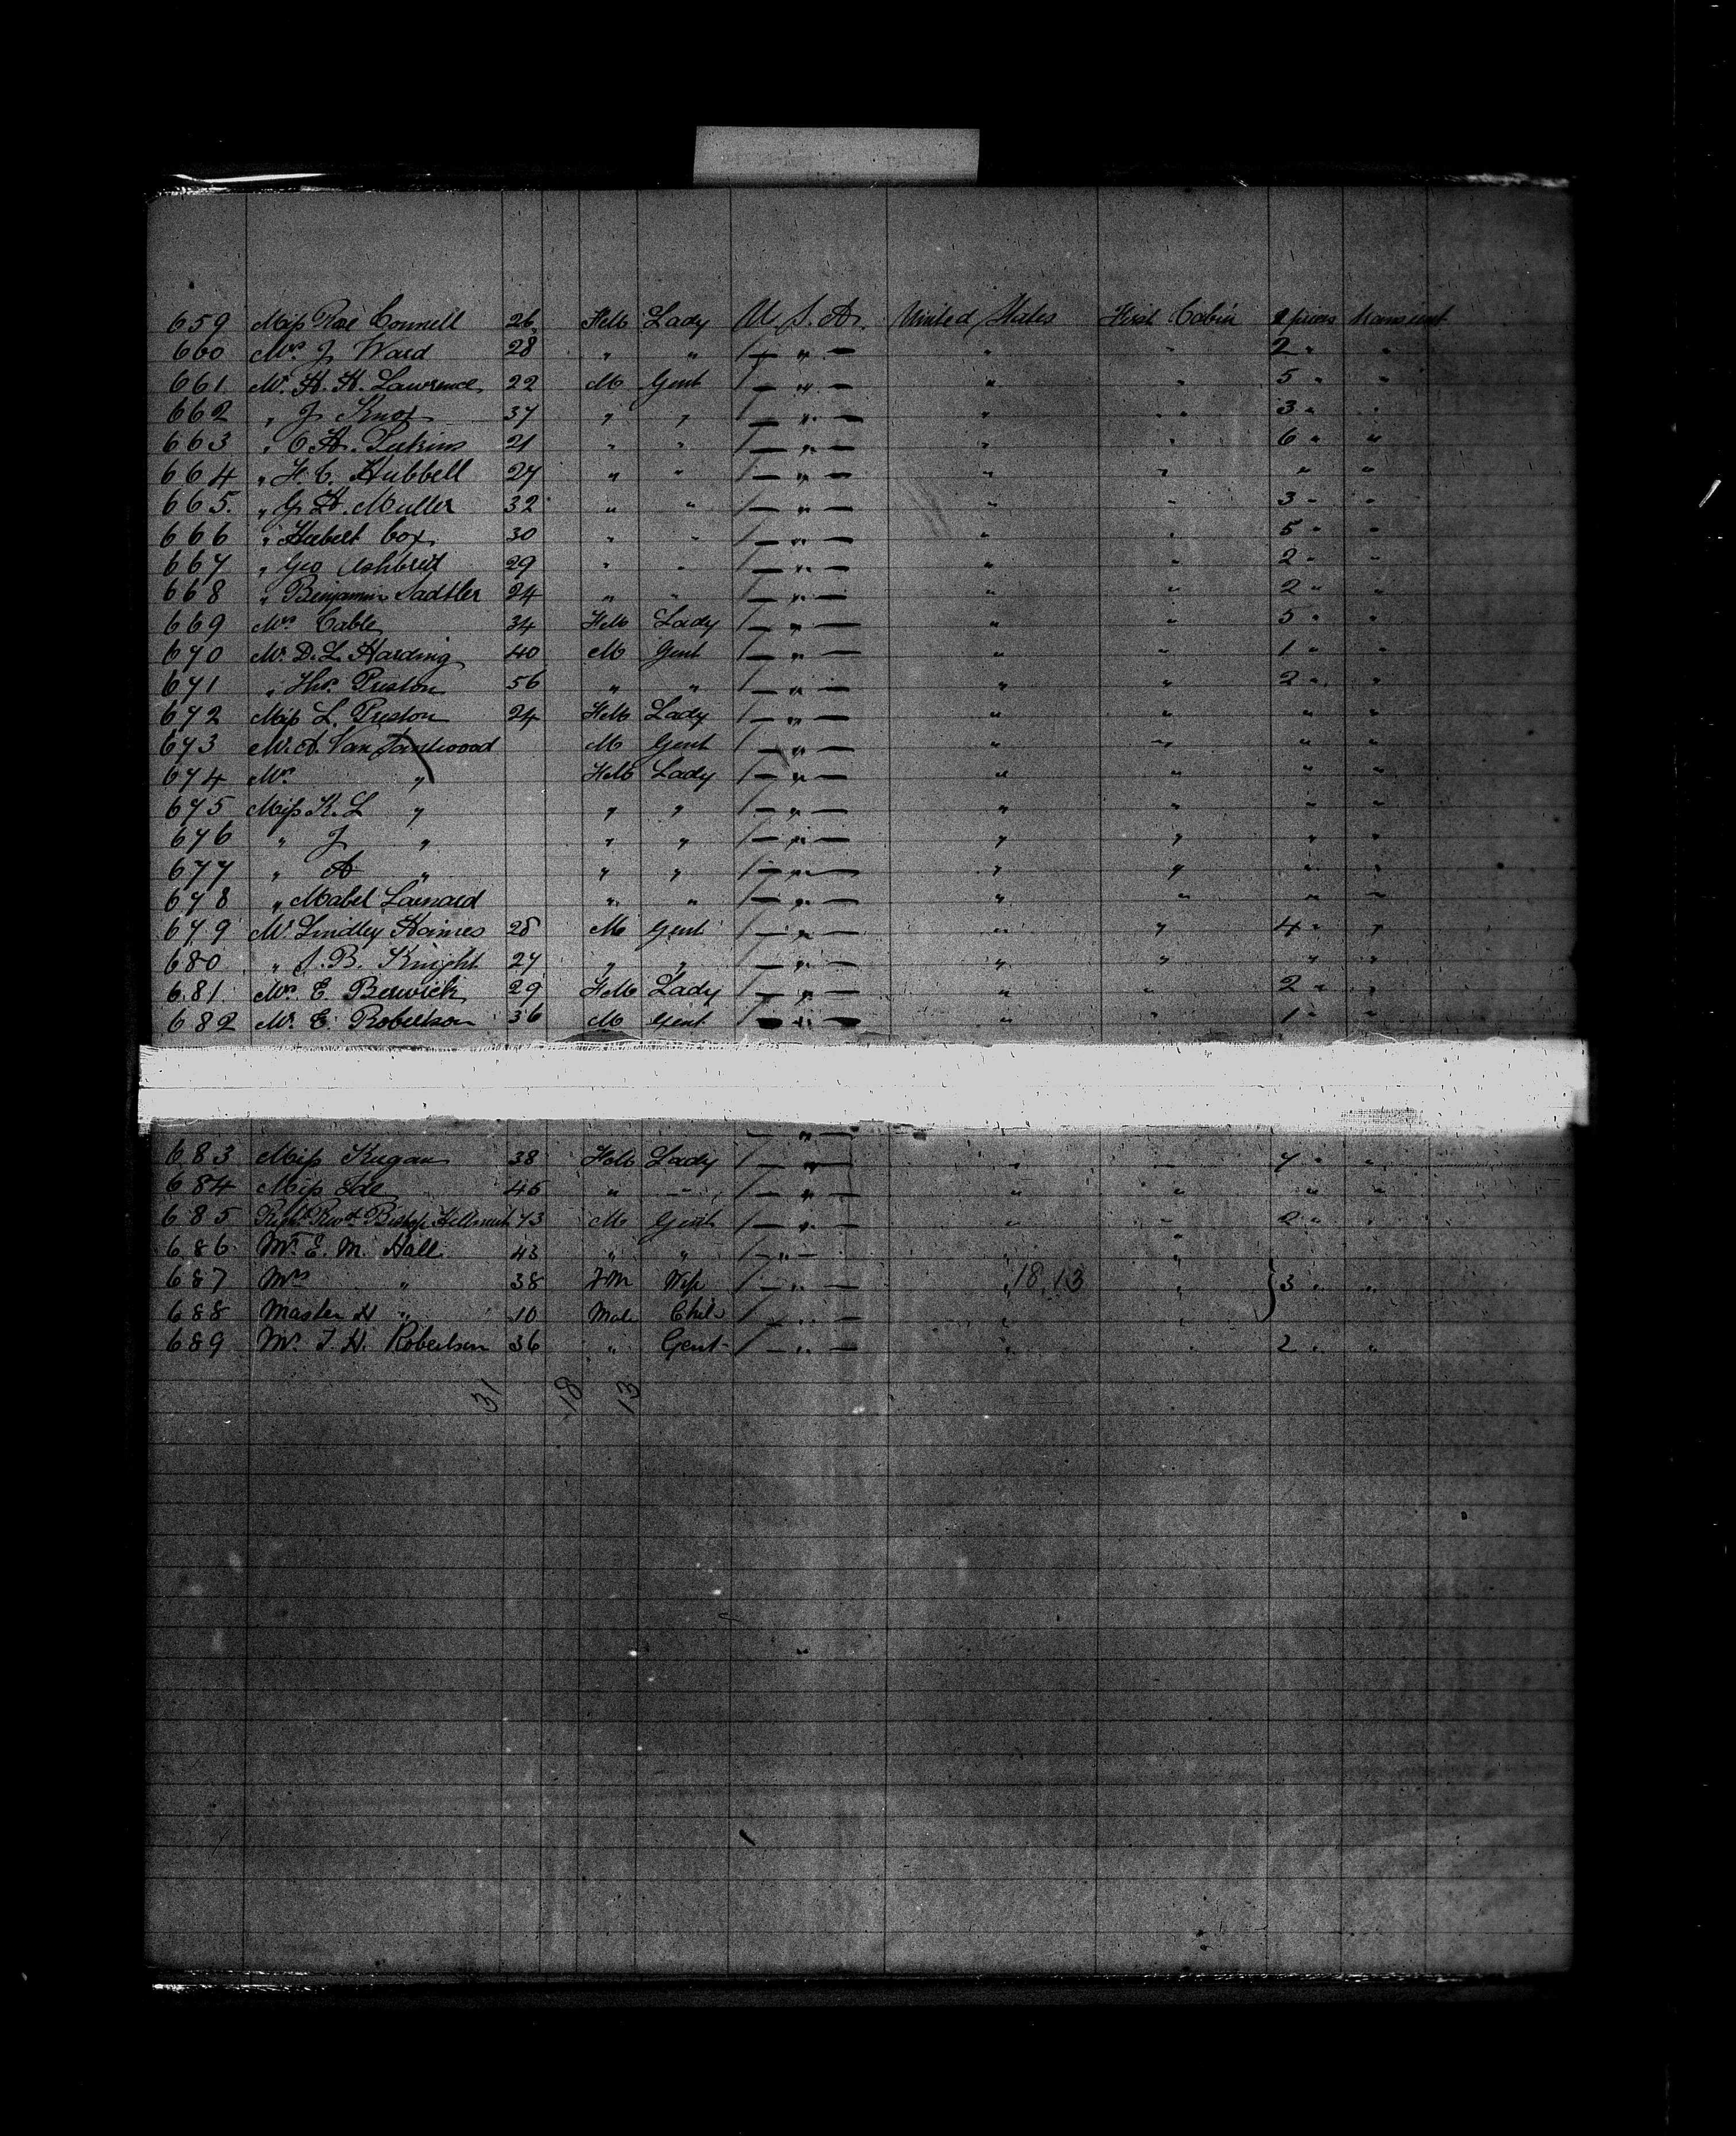 659 Miss Roe Connell 26 Fem Lady U. S. A. United States First Cabin 2 pieces transient
660 Mrs J Ward 28 " " " " " 2 " "
661 Mr. H. H. Lawrence 22 M Gent " " " 5 " "
662 " J Knox 37 " " " " " 3 " "
663 " C. A. Perkins 21 " " " " " 6 " "
664 " F. C. Hubbell 27 " " " " " " "
665. " G. H. Muller 32 " " " " " 3 " "
666 " Hubert Cox 30 " " " " " 5 " "
667 " Geo 29 " " " " " 2 " "
668 " Benjamin Sadtler 24 " " " " " 2 " "
669 Mrs Cable 34 Fem Lady " " " 5 " "
670 Mr. D. L. Harding 40 M Gent " " " 1 " "
671 " Thos. Preston 56 " " " " " 2 " "
672 Miss L. Preston 24 Fem Lady " " " " "
673 Mr. A. Van Santwood M Gent " " " " "
674 Mrs " Fem Lady " " " " "
675 Miss K. L " " " " " " " "
676 " J " " " " " " " "
677 " A " " " " " " " "
678 " Mabel Larnard " " " " " " "
679 Mr. Lindley Haines 28 M Gent " " " 4 " "
680 " S. B. Knight 27 " " " " " " "
681 Mrs. E. Berwick 29 Fem Lady " " " 2 " "
682 Mr. E. Robertson 36 M Gent " " " 1 " "
"
683 Miss Kugan 38 Fem Lady " " " 7 " "
684 Miss Ide 45 " " " " " " "
685 Right Revd Bishop Hellmuth 73 M Gent " " " 2 " "
686 Mr. E. M. Hall 43 " " " " "
687 Mrs " 38 Fm Wife " " 18,13 " 3 " "
688 Master H " 10 Male Child " " "
689 Mr. F. H. Robertson 36 " Gent " " " 2 " "
31 18 13